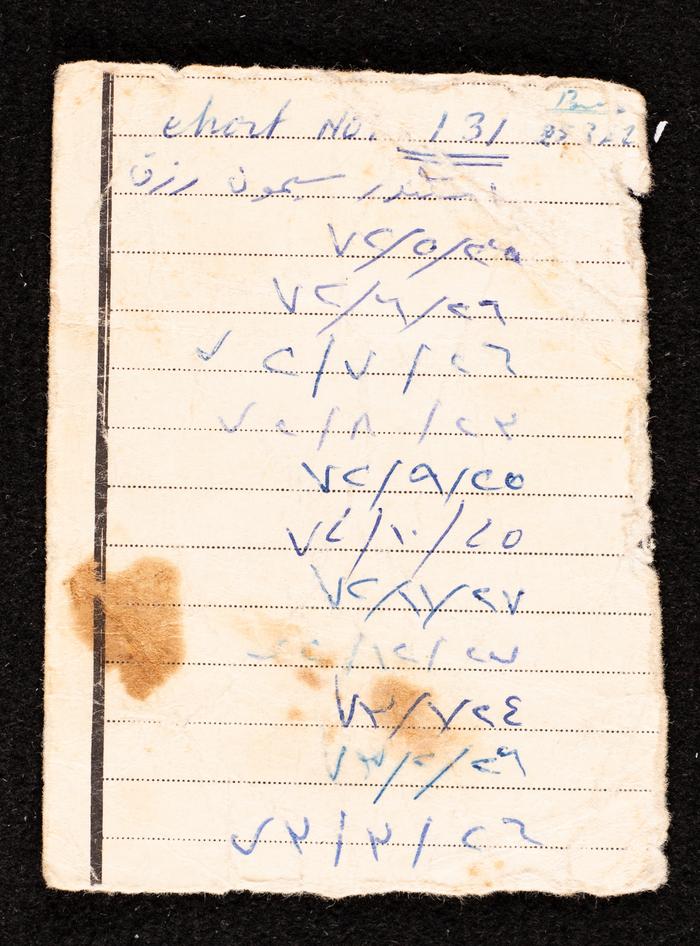 chart No. 131
سيمون رزق
٧٢/٥/٢٥
٧٢/٦/٢٦
٧٢/٧/٢٦
٧٢/٨/٢٣
٧٢/٩/٢٥
٧٢/١٠/٢٥
٧٢/١١/٢٧
٧٣/١/٢٤
٧٣/٢/٢٦
٧٣/٣/٢٦